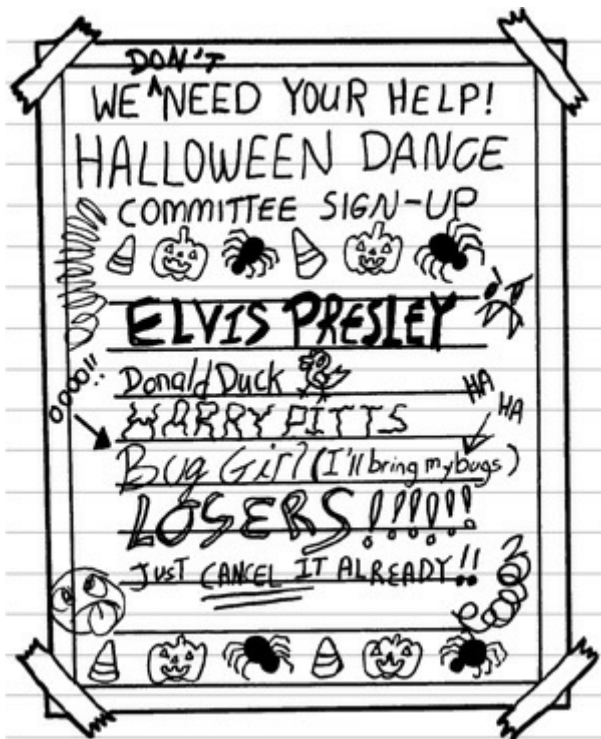 DON'T
WE ^ NEED YOUR HELP!
HALLOWEEN DANCE
COMMITTEE SIGN-UP
ELVIS PRESLEY
Donald Duck
HA
HARRY PITTS
HA
O,OOO!!
Bug Girl (I'll bring my bugs)
LOSERS!!!!!!
JUST CANCEL IT ALREADY!!